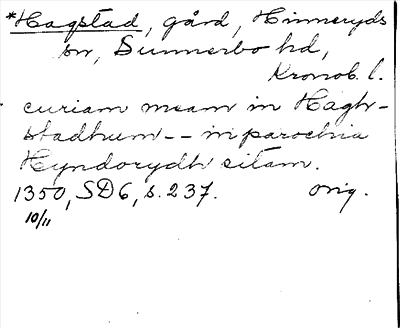 *Hagstad, gård, Hinneryds
sn, Sunnerbo hd,
Kronob. l.
curiam meam in Hagh-
stadhum -- in parochia
Hyndorydh sitam.
1350, SD6, s. 237. orig.
10/11